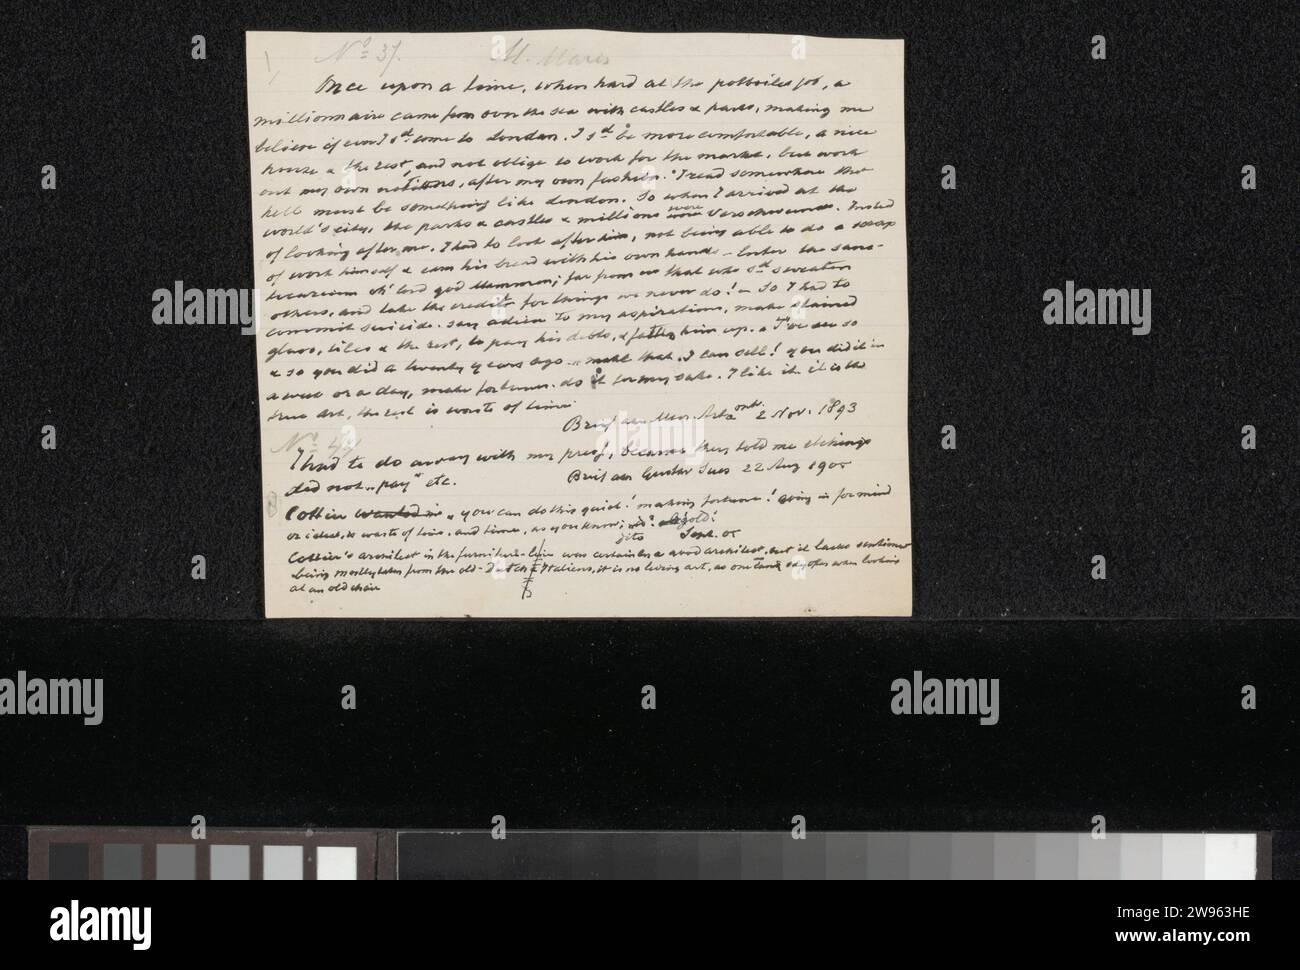 No 37.
M. Maris
Once upon a time, when hard at the potboiles job, a
millionnaire came from over the sea with castles & parks, making me
believe if ever I sd come to London. I sd be more comfortable, a nice
house & the rest, and not oblige to work for the market, but work
out my own notions, after my own fashion. I read somewhere that
hell must be something like London. So when I arrived at the
world's city, the parks & castles & millions were verschwunden. Insted
of looking after me. I had to look after him, not being able to do a scrap
of work himself & earn his bread with his own hands - Enter the sanc-
oh! lord god Mammon; far from us that who sd sweaten
others, and take the credit for things we never do! - So I had to
commit suicide. say adieu to my aspirations, make stained
glass, tiles & the rest, to pay his debts, & fatten him up. I've so
& so you did a twenty years ago. make that. I can sell! you did it in
a week or a day, make fortunes. do it for my sake. I like it. it is the
true art, the rest is waste of time
Brief aan 2 Nov. 1893
No 47
I had to do away with my press, because they told me etchings
did not "pay" etc.
Brief aan 22 Aug 1905
Cottier wanted me "you can do this quick! making fortune! Going in for mind
or ideas, is waste of time. and time, as you know; is gold!
Sept. 05
Cottier's architect in the furniture-line was certainly a good architect, but it lacks sentiment
being mostly taken from the old-Dutch & Italians, it is no living art, as one says often when looking
at an old chair
a alamy
alamy
Image ID: 2W963HE
www.alamy.com